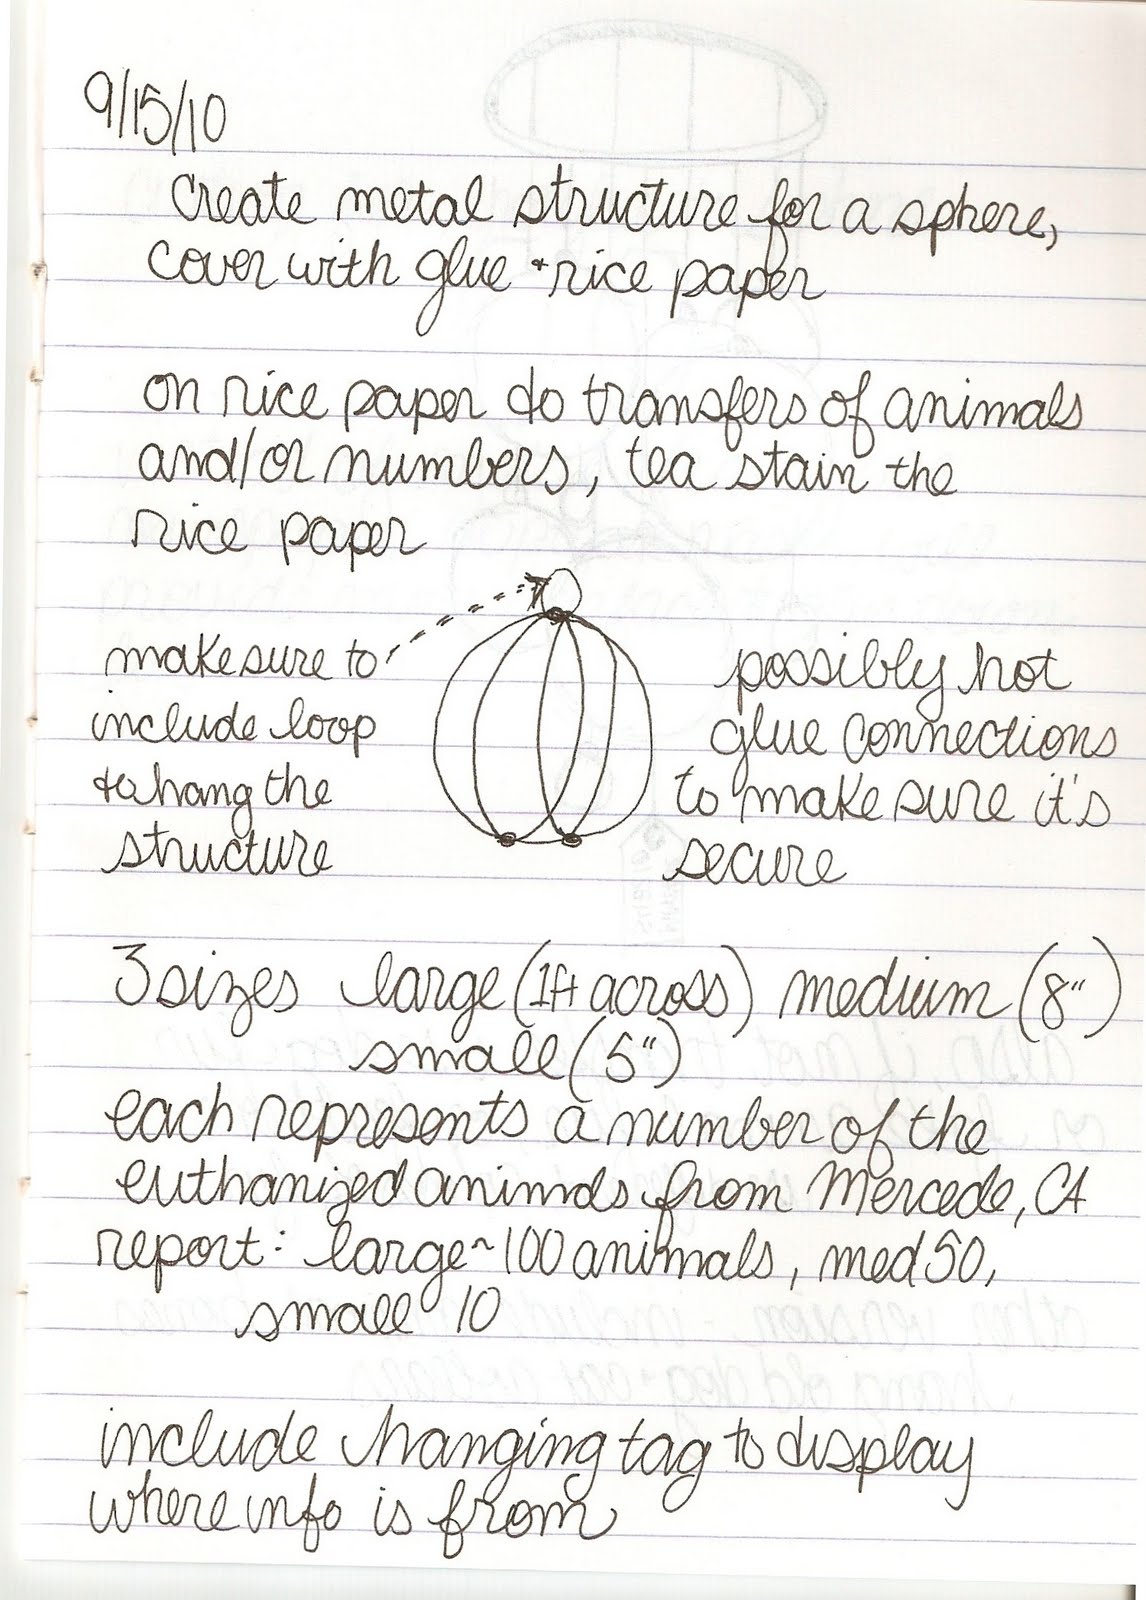 9/15/10
Create metal structure for a sphere,
cover with glue + rice paper
on rice paper do transfers of animals
and/or numbers, tea stain the
rice paper
make sure to
include loop
to hang the
structure
possibly hot
glue connections
to make sure it's
secure
3 sizes large (1ft across) medium (8")
small (5")
each represents a number of the
euthanized animals from Mercede, CA
report: large ~ 100 animals, med 50,
small 10
include hanging tag to display
where info is from